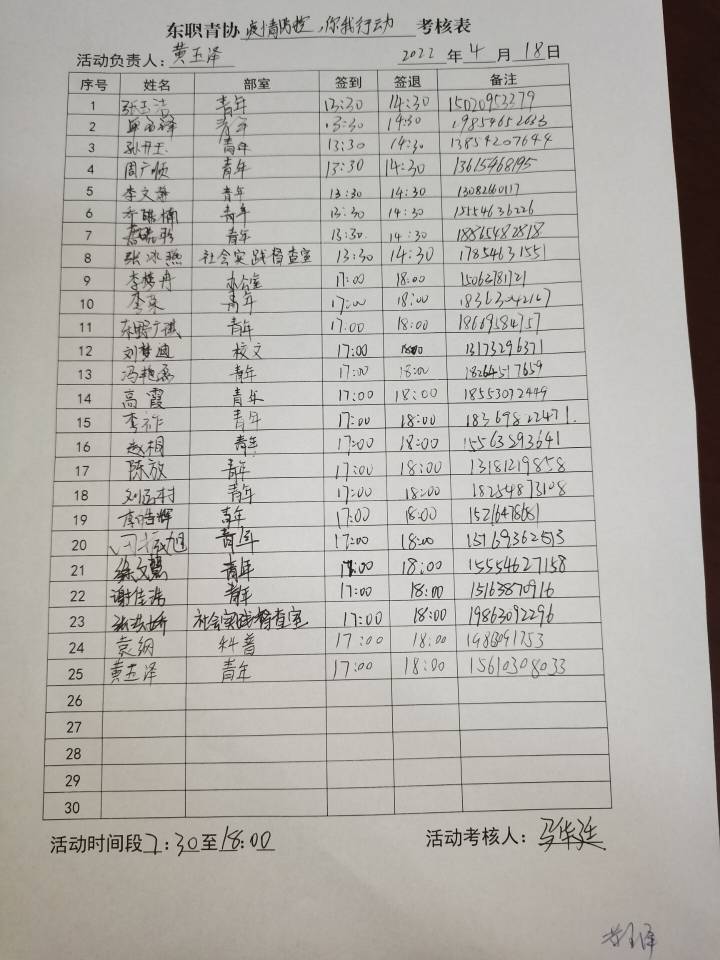 东职青协 疫情防控,你我行动 考核表
活动负责人: 黄玉泽 2022 年 4 月 18 日
序号 姓名 部室 签到 签退 备注
1 张玉洁 青年 13:30 14:30 15020952279
2 青年 13:30 14:30
3 孙丹玉 青年 13:30 14:30 13854207644
4 周广顺 青年 13:30 14:30 13615468195
5 李文静 青年 13:30 14:30
6 青年 13:30 14:30 15554636226
7 青年 13:30 14:30 18865482818
8 张冰燕 社会实践督查室 13:30 14:30 17854631551
9 李梦丹 办公室 17:00 18:00 15063781721
10 李荣 青年 17:00 18:00
11 青年 17:00 18:00 18669584757
12 刘梦迪 校文 17:00 18:00 13173296371
13 冯艳磊 青年 17:00 18:00 18264517659
14 高霞 青年 17:00 18:00 18553072449
15 李祚 青年 17:00 18:00 18369822471
16 赵相 青年 17:00 18:00 15563593641
17 陈放 青年 17:00 18:00 13181219858
18 青年 17:00 18:00 18254873108
19 青年 17:00 18:00
20 青年 17:00 18:00
21 徐文慧 青年 17:00 18:00 15554627158
22 谢佳浩 青年 17:00 18:00 15163870916
23 社会实践督查室 17:00 18:00 19863092296
24 袁纲 科普 17:00 18:00
25 黄玉泽 青年 17:00 18:00 15610308033
26
27
28
29
30
活动时间段 7:30 至 18:00 活动考核人: 马华廷